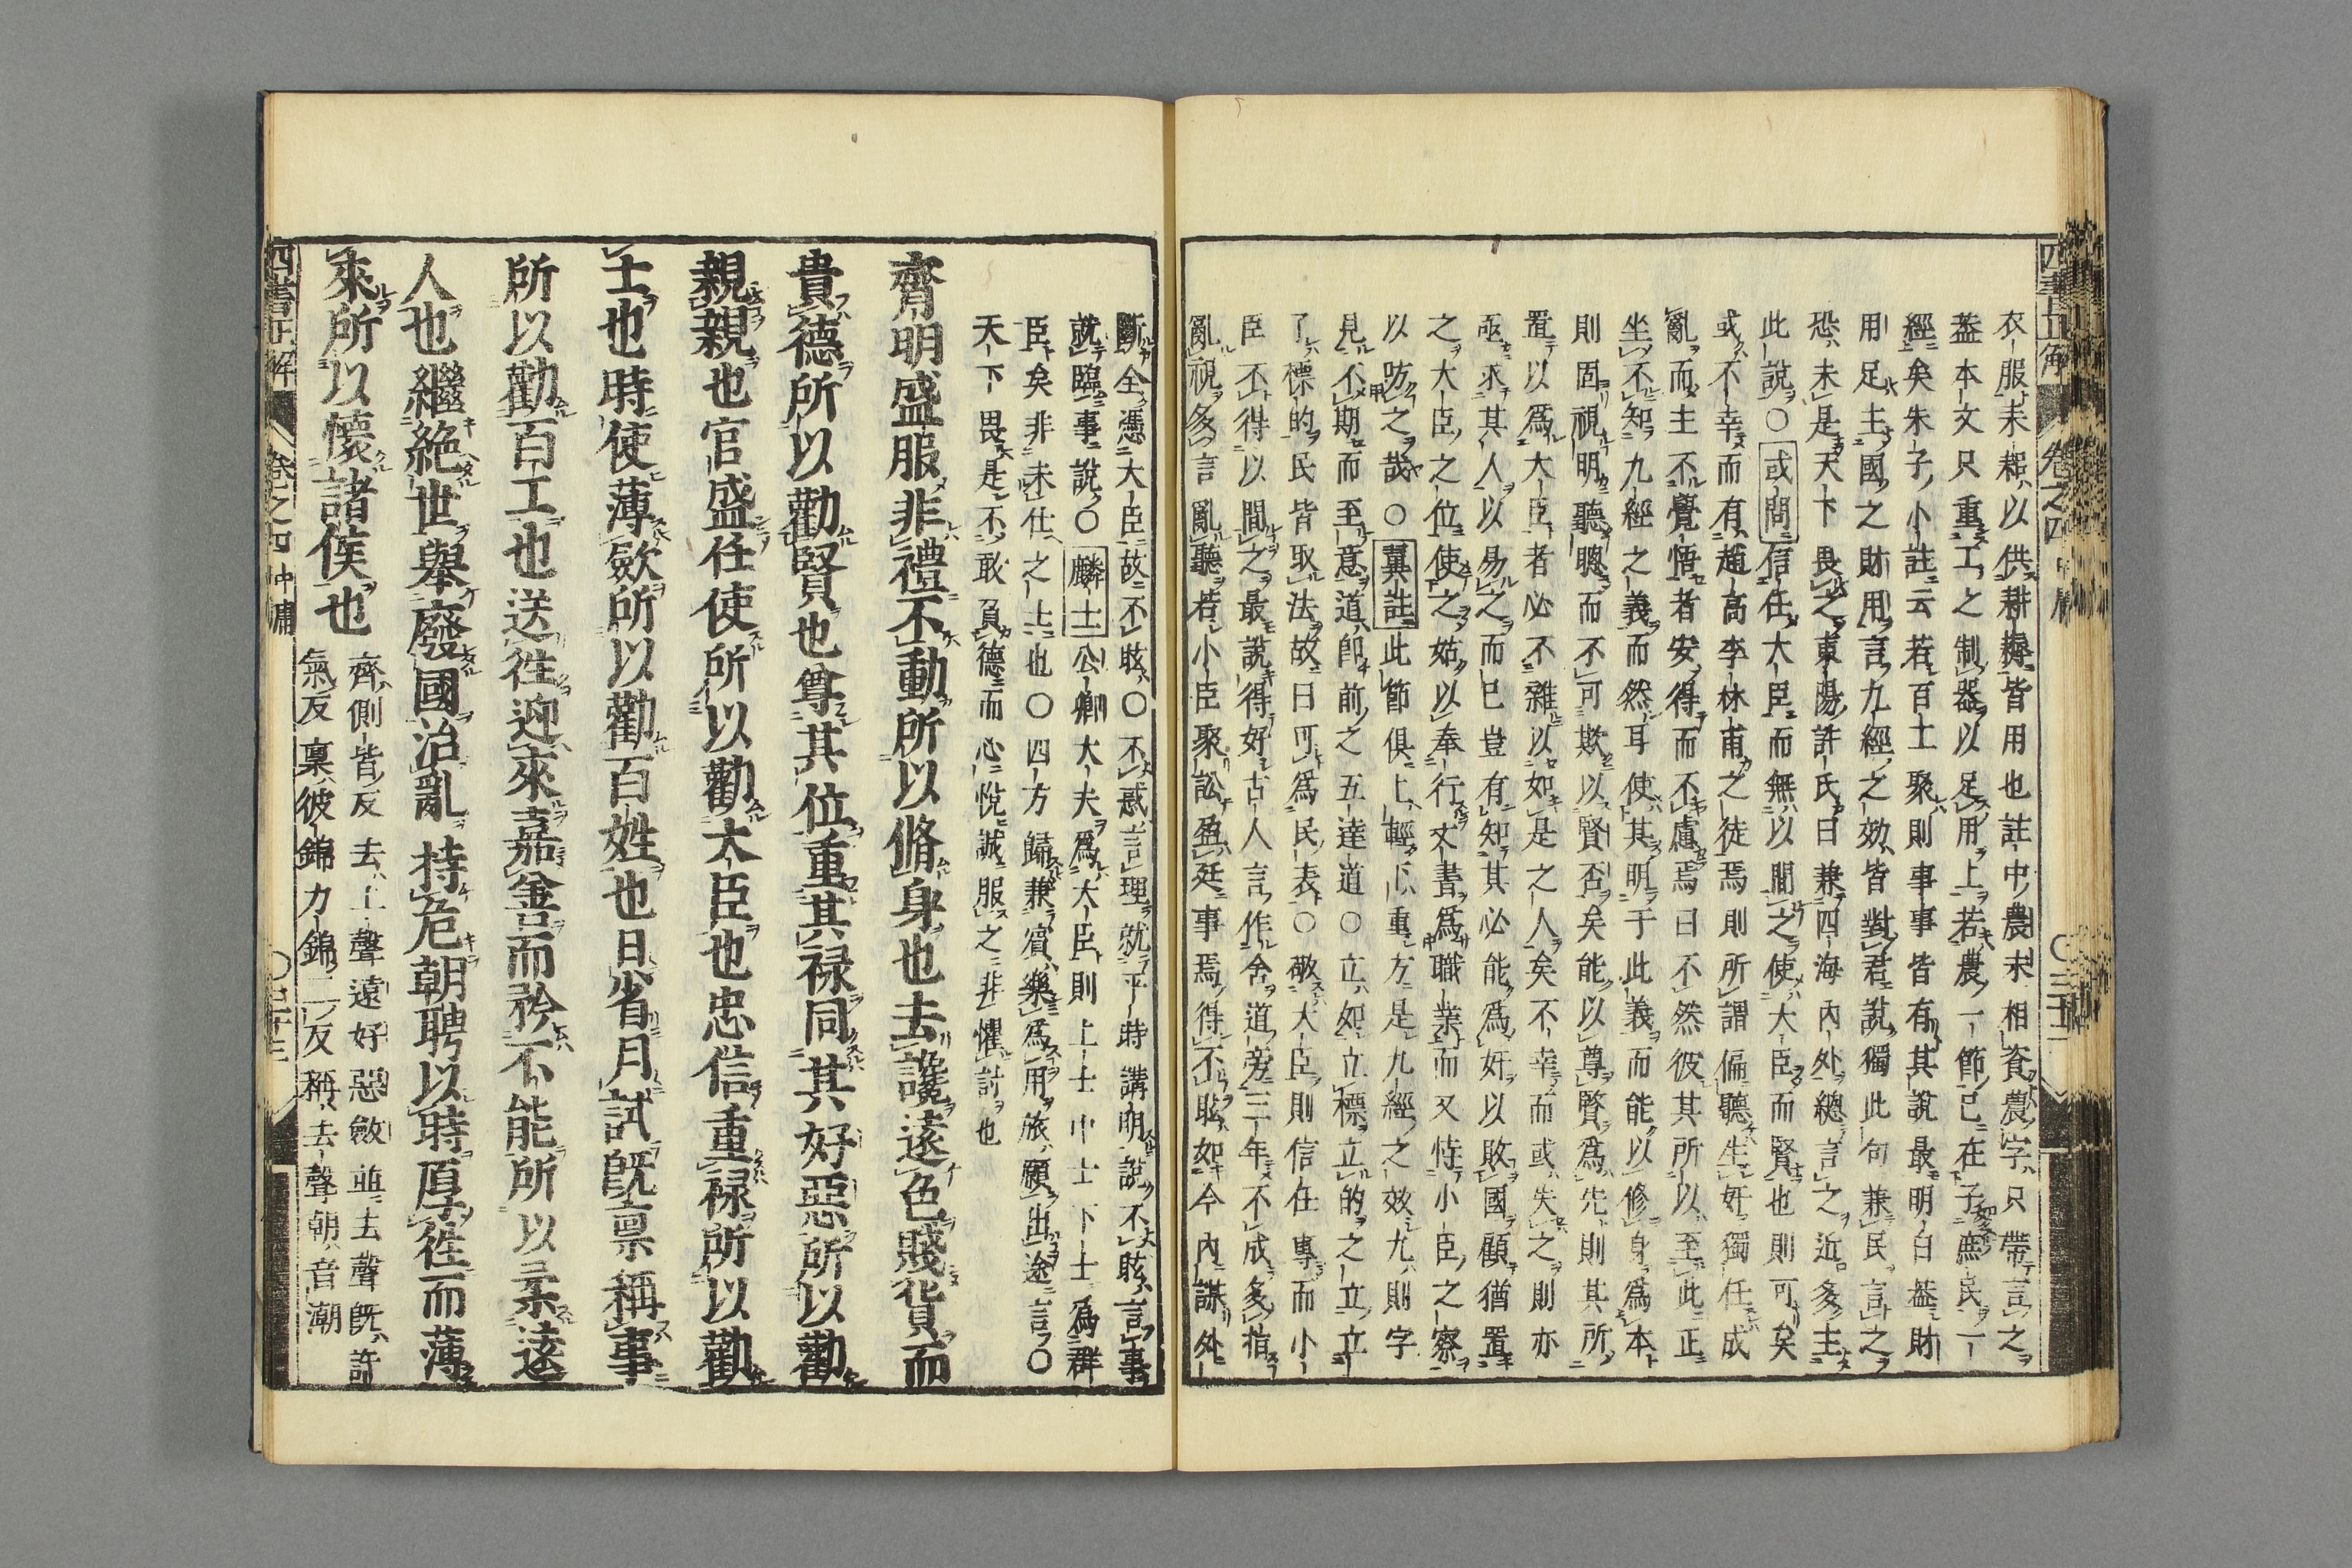 衣服末耜以供耕耨皆用也註中農末相資農字只帶言之
蓋本文只重工之制器以足用上若農一節已在子庶民一
經矣朱子小註云若百工聚則事事皆有其說最明白蓋財
用足主國之財用言九經之效皆對君說獨此句兼民言之
恐未是天下畏之東陽許氏曰兼四海內外總言之近多主
此說〇或問信任大臣而無以間之使大臣而賢也則可矣
或不幸而有趙高李林甫之徒焉則所謂偏聽生奸獨任成
亂而主不覺悟者安得而不慮焉曰不然彼其所以至此正
坐不知九經之義而然耳使其明于此義而能以修身爲本
則固視明聽聰而不可欺以賢否矣能以尊賢爲先則其所
置以爲大臣者必不雜以如是之人矣不幸而或失之則亦
亟求其人以易之而已豈有知其必能爲奸以敗國顧猶置
之大臣之位使之姑以奉行文書爲職業而又恃小臣之察
以防之哉〇翼註此節俱上輕下重方是九經之效九則字
見不期而至意道即前之五達道〇立如立標立的之立立
了標的民皆取法故曰可爲民表〇敬大臣則信任專而小
臣不得以間之最說得好古人言作舍道旁三年不成多指
亂視多言亂聽若小臣聚訟盈廷事焉得不眩如今內謀外
斷全憑大臣故不眩〇不惑言理就平時講明說不眩言事
就臨事說〇麟士公卿大夫爲大臣則上士中士下士爲群
臣矣非未仕之士也〇四方歸兼賓樂爲用旅願出途言〇
天下畏是不敢負德而心悅誠服之非懼討也
齊明盛服非禮不動所以脩身也去讒遠色賤貨而
貴德所以勸賢也尊其位重其祿同其好惡所以勸
親親也官盛任使所以勸大臣也忠信重祿所以勸
士也時使薄斂所以勸百姓也日省月試旣禀稱事
所以勸百工也送往迎來嘉善而矜不能所以柔遠
人也繼絶世舉廢國治亂持危朝聘以時厚徃而薄
來所以懷諸侯也
齊側皆反去上聲遠好惡斂並去聲旣許
氣反稟彼錦力錦二反稱去聲朝音潮
四書正解
卷之四中庸
〇三十三